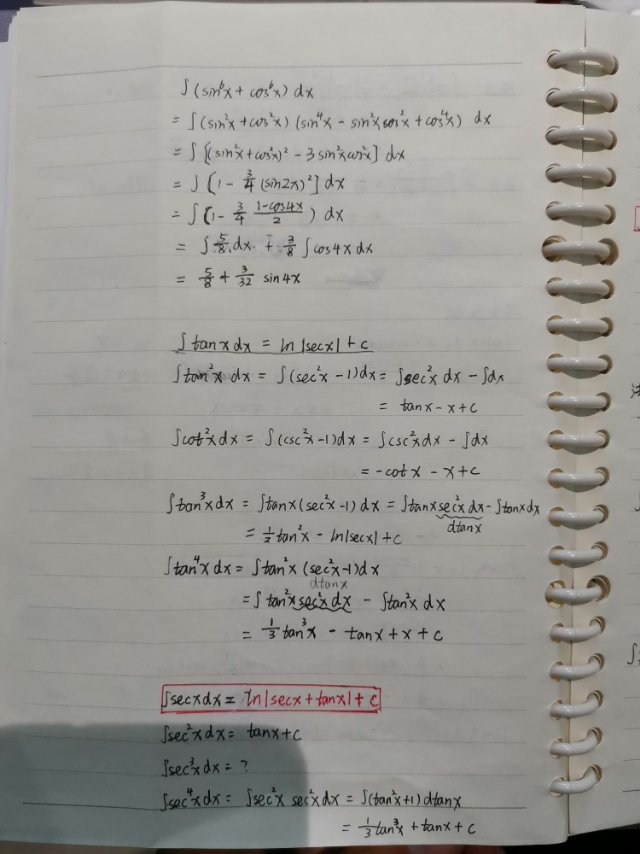 ∫(sin⁶x + cos⁶x) dx
= ∫(sin²x + cos²x) (sin⁴x - sin²x cos²x + cos⁴x) dx
= ∫[(sin²x + cos²x)² - 3 sin²x cos²x] dx
= ∫[1 - 3/4 (sin2x)²] dx
= ∫(1 - 3/4 (1-cos4x)/2) dx
= ∫ 5/8 dx + 3/8 ∫cos4x dx
= 5/8 + 3/32 sin4x
∫tanx dx = ln|secx| + c
∫tan²x dx = ∫(sec²x - 1)dx = ∫sec²x dx - ∫dx
= tanx - x + c
∫cot²x dx = ∫(csc²x - 1)dx = ∫csc²x dx - ∫dx
= -cotx - x + c
∫tan³x dx = ∫tanx(sec²x - 1) dx = ∫tanx sec²x dx - ∫tanx dx
dtanx
= 1/2 tan²x - ln|secx| + c
∫tan⁴x dx = ∫tan²x (sec²x - 1)dx
dtanx
= ∫tan²x sec²x dx - ∫tan²x dx
= 1/3 tan³x - tanx + x + c
∫secx dx = ln|secx + tanx| + c
∫sec²x dx = tanx + c
∫sec³x dx = ?
∫sec⁴x dx = ∫sec²x sec²x dx = ∫(tan²x + 1) dtanx
= 1/3 tan³x + tanx + c